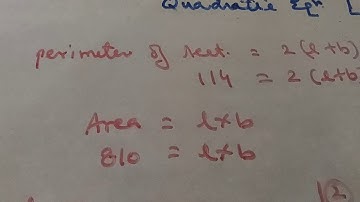 Quadratic Eqn [
perimeter of rect. = 2(l+b)
114 = 2(l+b
Area = l×b
810 = l×b
12